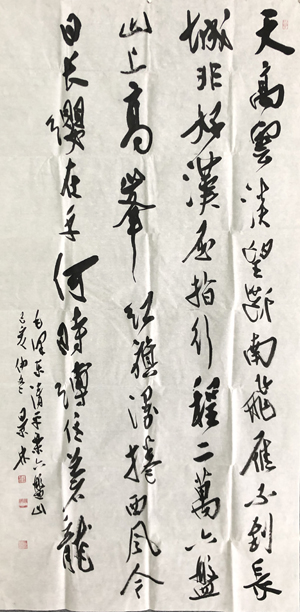 天高雲淡望斷南飛雁不到長
城非好漢屈指行程二萬六盤
山上高峯紅旗漫捲西風今
日長纓在手何時縛住蒼龍
毛澤東清平樂六盤山
己亥仲冬